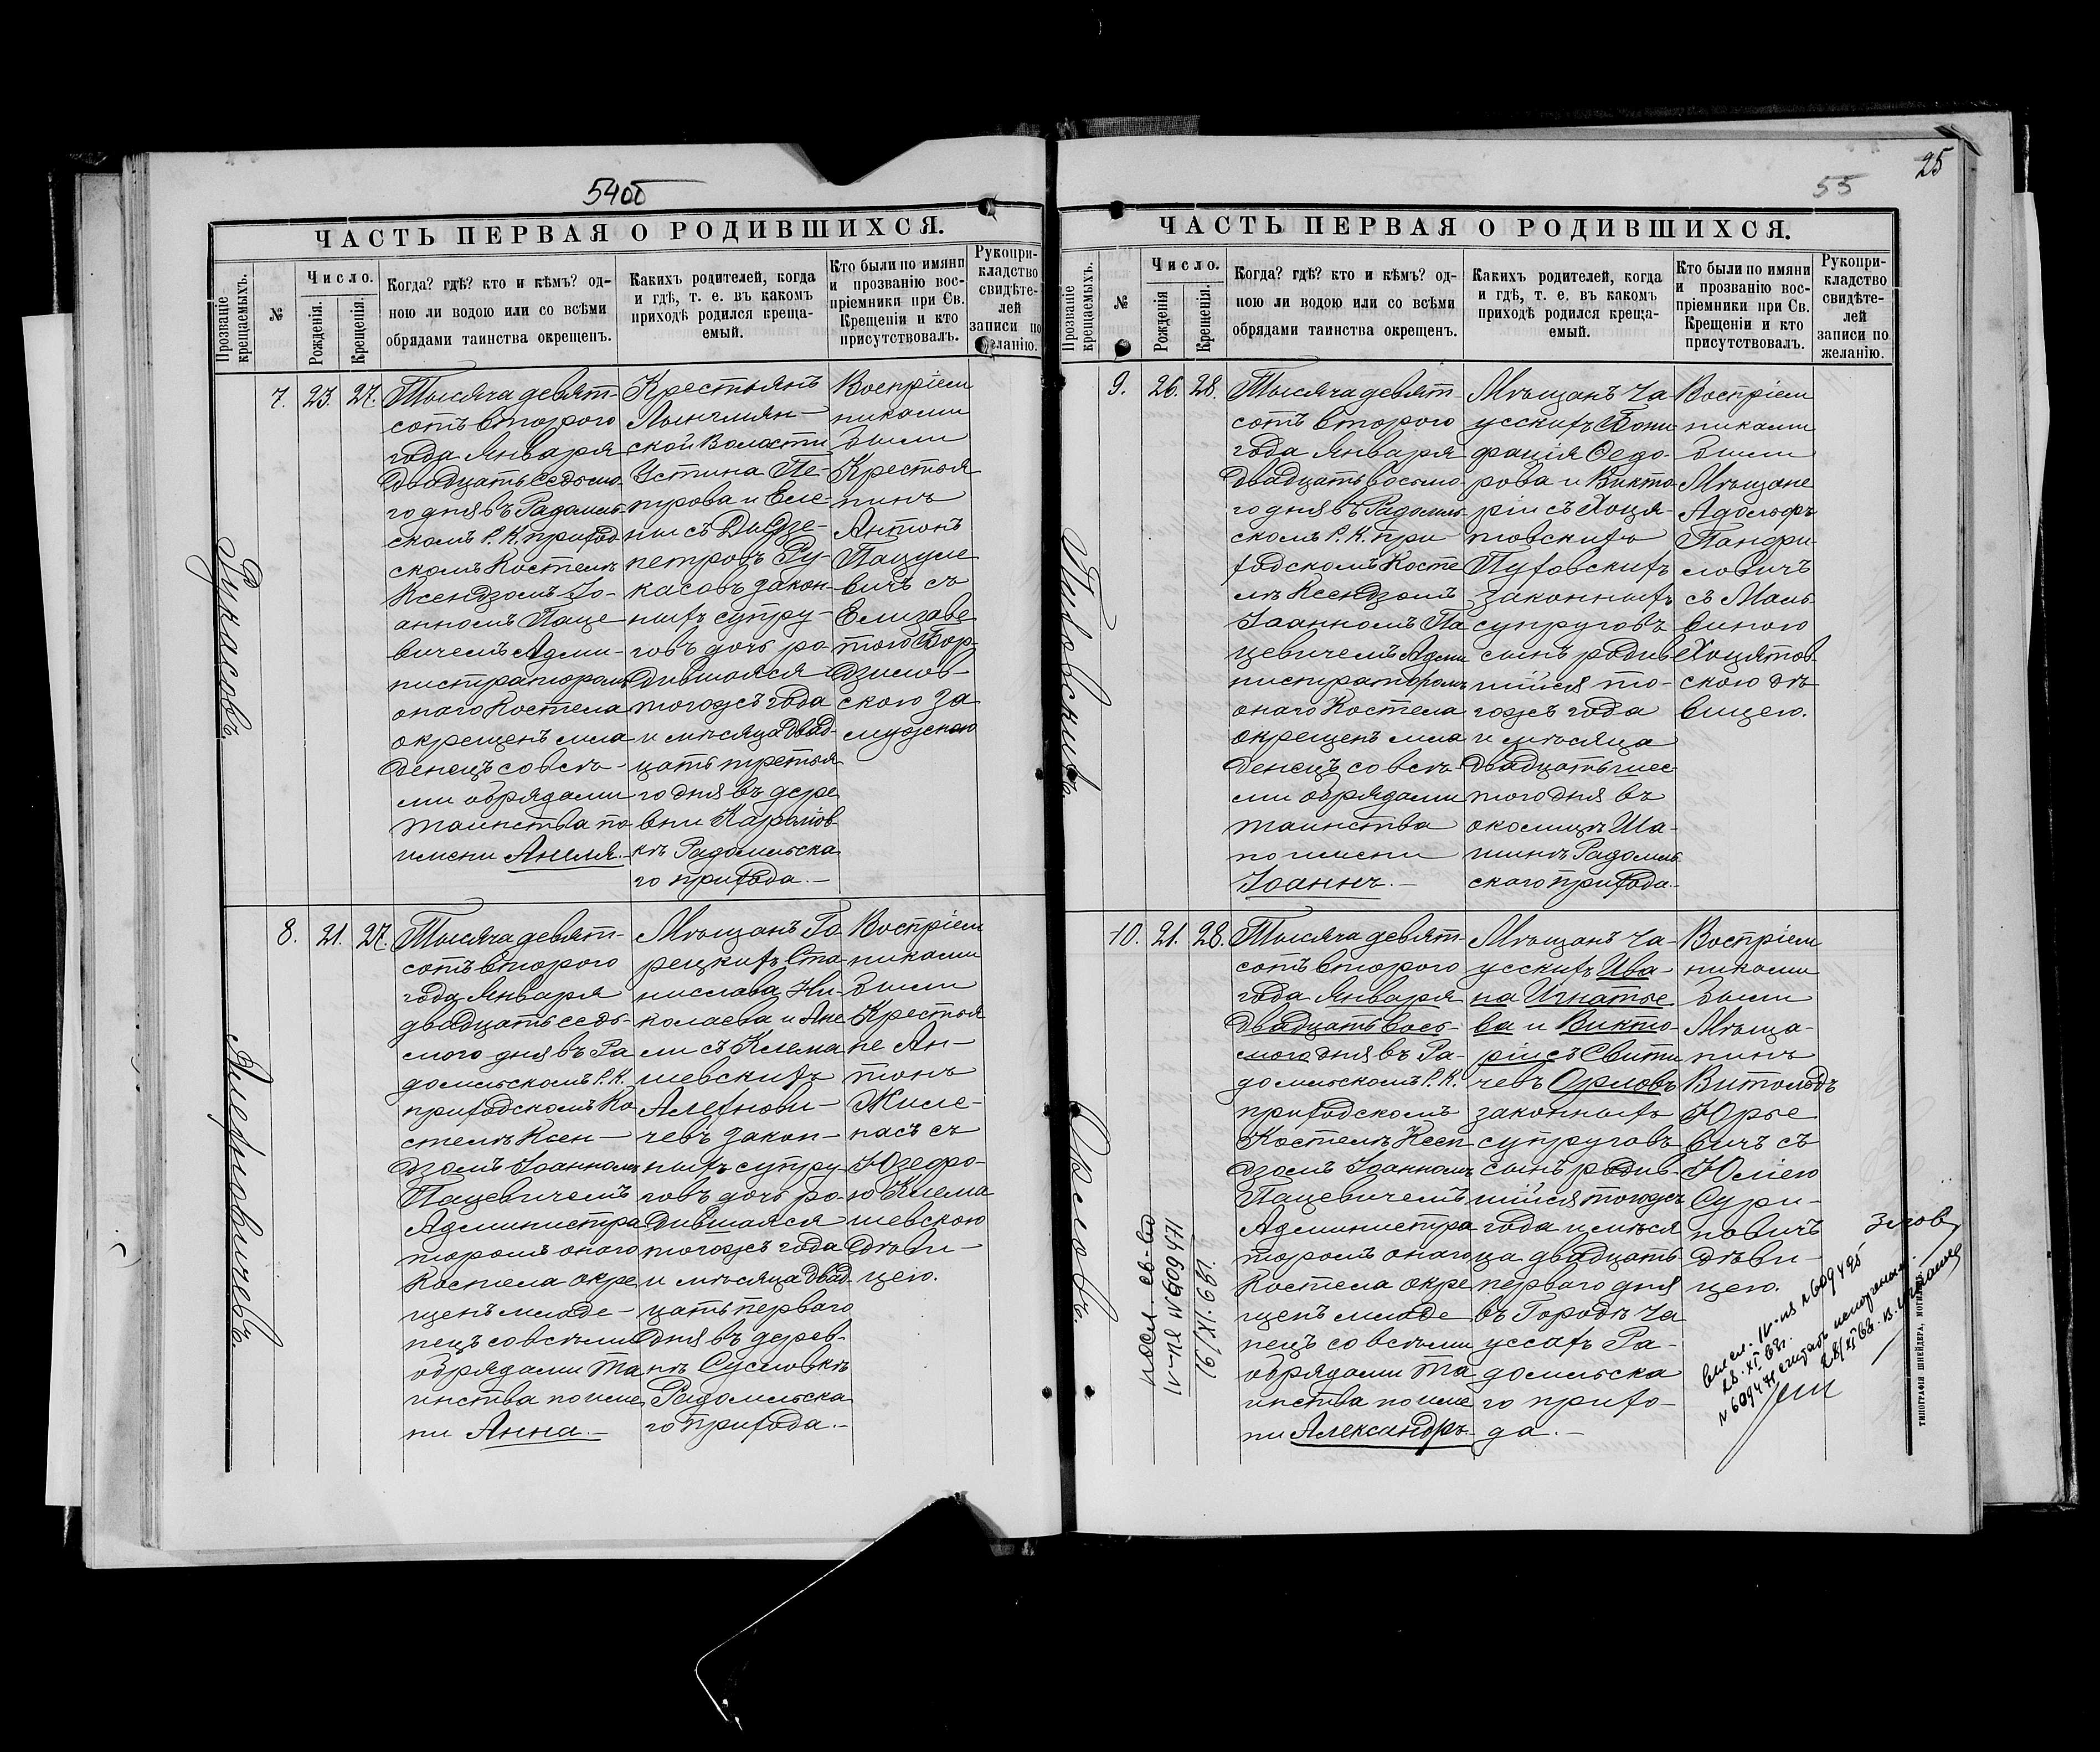 54об
ЧАСТЬ ПЕРВАЯ О РОДИВШИХСЯ.
Прозваніе крещаемыхъ.
№
Число.
Рожденія.
Крещенія.
Когда? гдѣ? кто и кѣмъ? од-
ною ли водою или со всѣми
обрядами таинства окрещенъ.
Какихъ родителей, когда
и гдѣ, т. е. въ какомъ
приходѣ родился креща-
емый.
Кто были по имяни
и прозванію вос-
пріемники при Св.
Крещеніи и кто
присутствовалъ.
Рукопри-
кладство
свидѣте-
лей
записи по
желанію.
Рукасовъ.
7.
23.
27.
Тысяча девят-
сотъ второго
года Января
двадцать седьмо
го дня въ Радомль-
скомъ Р. К. приход
скомъ Костелѣ
Ксендзомъ Іо-
анномъ Паце
вичемъ Адми-
нистраторомъ
онаго Костела
окрещенъ мла
денецъ со всѣ-
ми обрядами
таинства по
имени Анеля.-
Крестьянъ
ской Волости
Устина Пе-
трова и Еле-
ны съ
петровъ Ру-
касовъ закон-
ныхъ супру-
говъ дочь ро
дившаяся
тогожъ года
и мѣсяца двад-
цать третья
го дня въ дере
вни
кѣ Радомльска
го прихода.-
Воспріем
никами
были
Крестья
нинъ
Антонъ
Пацуле
вичъ съ
Елизаве
тою Бор-
дзилов-
скою за
мужнею
Алехновичевъ.
8.
21.
27.
Тысяча девят-
сотъ второго
года Января
двадцать седь-
мого дня въ Ра
домльскомъ Р. К.
приходскомъ Ко
стелѣ Ксен-
дзомъ Іоанномъ
Пацевичемъ
Администра
торомъ онаго
Костела окре
щенъ младе-
нецъ со всѣми
обрядами та
инства по име
ни Анна.-
Мѣщанъ Го
рецкихъ Ста
нислава Ни-
колаева и Ане
ли съ Клима
шевскихъ
Алехнови-
чевъ закон-
ныхъ супру
говъ дочь ро-
дившаяся
тогожъ года
и мѣсяца двад
цать перваго
дня въ дерев-
нѣ Сусловкѣ
Радомльска
го прихода.-
Воспріем
никами
были
Крестья
не Ан-
тонъ
съ
Юзефо-
ю Клима
шевскою
дѣви-
цею.
25
55
ЧАСТЬ ПЕРВАЯ О РОДИВШИХСЯ.
Прозваніе крещаемыхъ.
№
Число.
Рожденія
Крещенія.
Когда? гдѣ? кто и кѣмъ? од-
ною ли водою или со всѣми
обрядами таинства окрещенъ.
Какихъ родителей, когда
и гдѣ, т. е. въ какомъ
приходѣ родился креща-
емый.
Кто были по имяни
и прозванію вос-
пріемники при Св.
Крещеніи и кто
присутствовалъ.
Рукопри-
кладство
свидѣте-
лей
записи по
желанію.
Пуховскихъ.
9.
26.
28.
Тысяча девят
сотъ второго
года Января
двадцать восьмо
го дня въ Радомль-
скомъ Р. К. при
ходскомъ Косте
лѣ Ксендзомъ
Іоанномъ Па
цевичемъ Адми
нистраторомъ
онаго Костела
окрещенъ мла
денецъ со всѣ-
ми обрядами
таинства
по имени
Іоаннъ.-
Мѣщанъ Ча
усскихъ Бони
фація Ѳедо-
рова и Викто-
ріи съ Хоця-
товскихъ
Пуховскихъ
законныхъ
супруговъ
сынъ родив
шійся то-
гожъ года
и мѣсяца
двадцать шес-
того дня въ
околицѣ Ша-
шинѣ Радомль
скаго прихода-
Воспріем
никами
были
Мѣщане
Адольфъ
Панфи-
ловичъ
съ Маль-
виною
Хоцятов-
скою дѣ
вицею.
Орловъ.
10.
21.
28.
Тысяча девят-
сотъ второго
года Января
двадцать вось-
мого дня въ Ра-
домльскомъ Р. К.
приходскомъ
Костелѣ Ксен
дзомъ Іоанномъ
Пацевичемъ
Администра
торомъ онаго
Костела окре
щенъ младе
нецъ со всѣми
обрядами та
инства по име
ни Александръ-
Мѣщанъ Ча-
усскихъ Ива-
на Игнатье
ва и Викто-
ріи съ Свити
чевъ Орловъ
законныхъ
супруговъ
сынъ родив-
шійся тогожъ
года и мѣся
ца двадцать
перваго дня
въ Городѣ Ча
уссахъ Ра-
домльска
го прихо-
да.-
Воспріем
никами
были
Мѣща-
нинъ
Витольдъ
Юрье
вичъ съ
Юліею
Сури-
новичъ
дѣви-
цею.
св-во
IV-пя №609471
16/XI.61г.
IV-пя №609495
28.XI.68г.
№609471 считать
28/XI68г.
ТИПОГРАФІЯ ШНЕЙДЕРА, МОГИЛЕВЪ